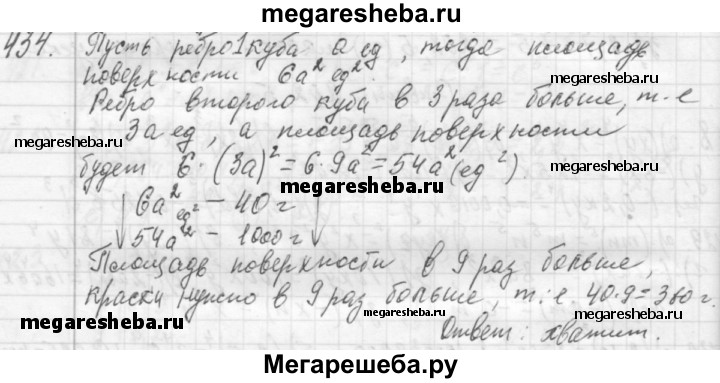 megaresheba.ru
434. Пусть ребро 1 куба a ед, тогда площадь
поверхности 6a² ед².
megaresheba.ru
Ребро второго куба в 3 раза больше, т.е
3a ед, а площадь поверхности
megaresheba.ru
будет 6·(3a)²=6·9a²=54a²(ед²)
megaresheba.ru
megaresheba.ru
6a² ед² – 40 г
54a² – 1000 г
Площадь поверхности в 9 раз больше,
краски нужно в 9 раз больше, т.е. 40·9=360 г.
megaresheba.ru
megaresheba.ru
megaresheba.ru
Ответ: хватит.
Мегарешеба.ру